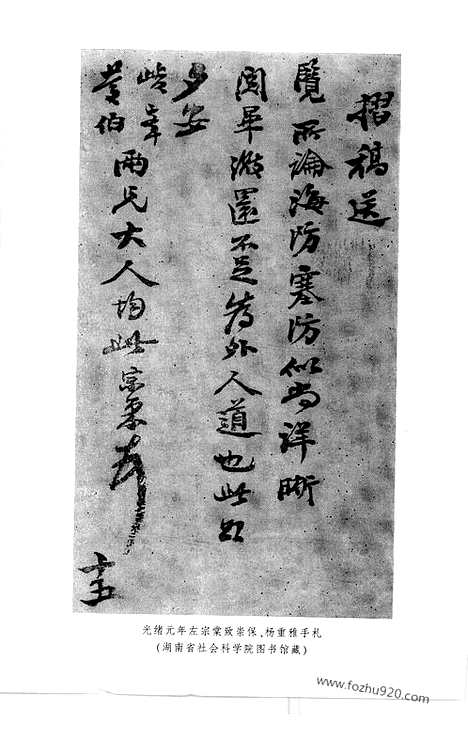 摺稿送
覽所論海防塞防似尚詳晰
閱畢還不足為外人道也此叩
夕安
伯
兩兄大人均此宗棠
十五
光绪元年左宗棠致崇保、杨重雅手札
(湖南省社会科学院图书馆藏)
www.fozhu920.com